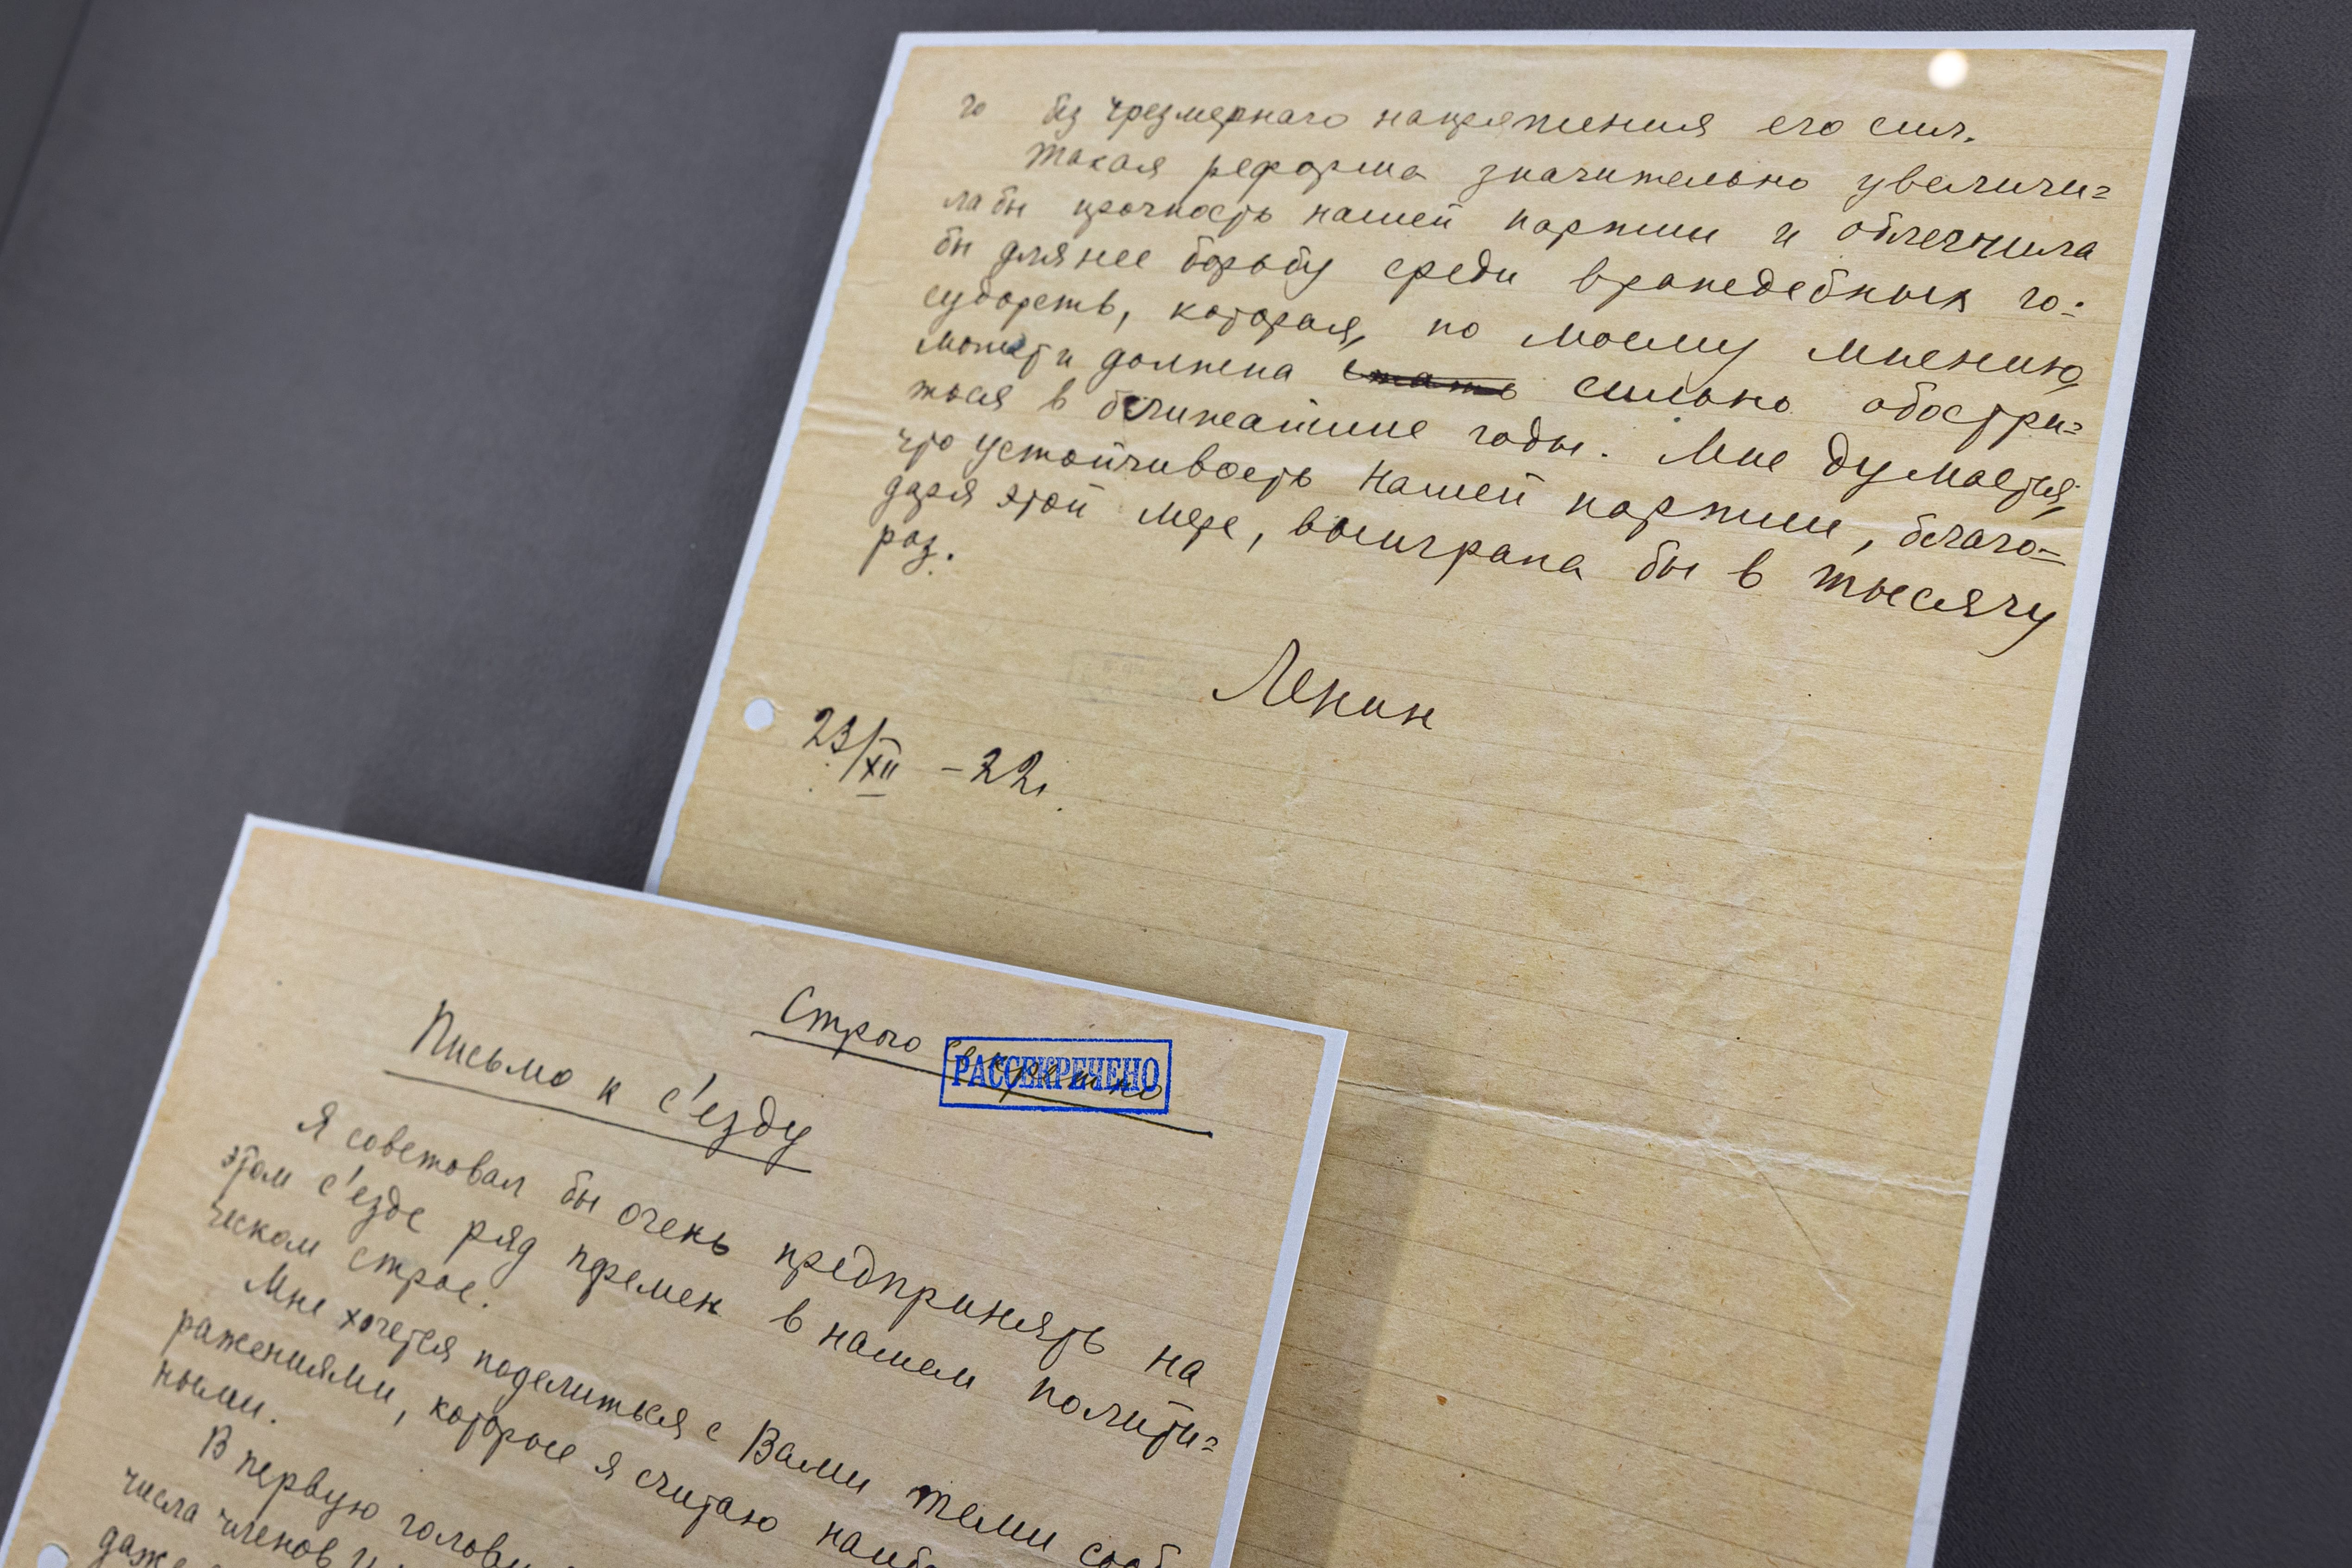 го без чрезмернаго напряжения его сил.
Такая реформа значительно увеличи=
ла бы прочность нашей партии и облегчила
бы для нее борьбу среди враждебных го=
сударств, которая, по моему мнению,
может и должна стать сильно обостри=
ться в ближайшие годы. Мне думается,
что устойчивость нашей партии, благо=
даря этой мере, выиграла бы в тысячу
раз.
Ленин
23/XII – 22 г.
Строго секретно
РАССЕКРЕЧЕНО
Письмо к с'езду
Я советовал бы очень предпринять на
этом с'езде ряд перемен в нашем полити=
ческом строе.
Мне хочется поделиться с Вами теми сооб
ражениями, которые я считаю наиб
ными.
В первую голову
числа членов
даже